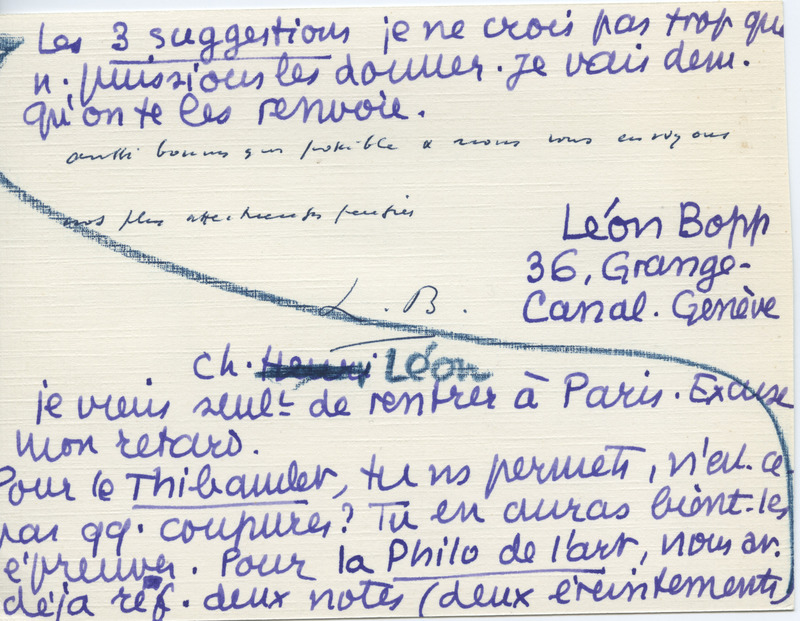 Les 3 suggestions je ne crois pas trop que
n. puissions les donner. Je vais dem.
qu'on te les renvoie.
aussi bonnes que possible & nous vous envoyons
nos plus affectueuses pensées
Léon Bopp
36, Grange-
Canal. Genève
L. B.
Ch. Henri Léon
je viens seult de rentrer à Paris. Excuse
mon retard.
Pour le Thibaudet, tu ns permets, n'est-ce
pas qq. coupures? Tu en auras bient. les
épreuves. Pour la Philo de l'art, nous av.
déjà réf. deux notes (deux éreintements)